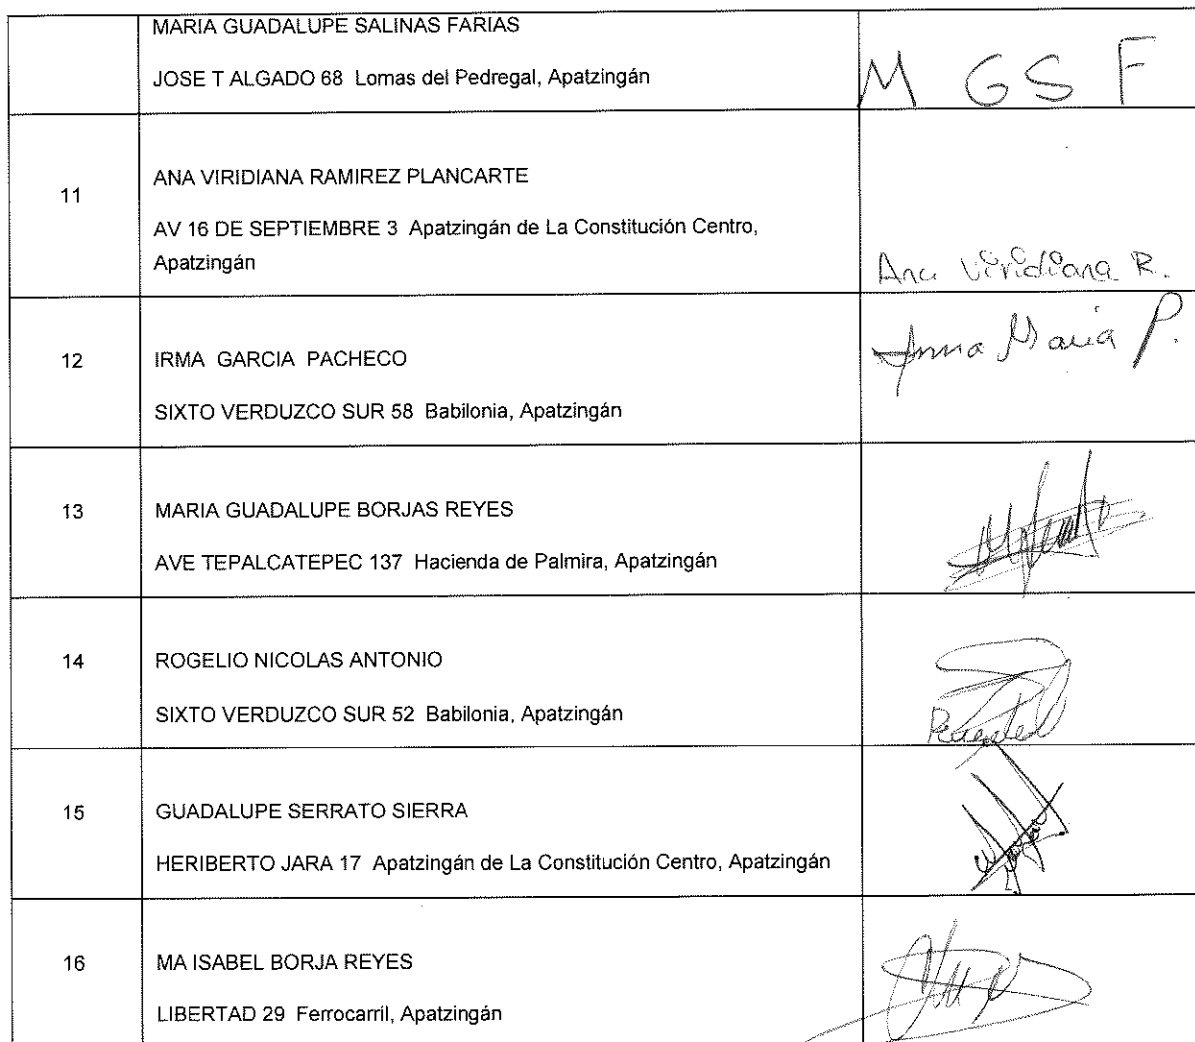 MARIA GUADALUPE SALINAS FARIAS
JOSE T ALGADO 68 Lomas del Pedregal, Apatzingán
M G S F
11
ANA VIRIDIANA RAMIREZ PLANCARTE
AV 16 DE SEPTIEMBRE 3 Apatzingán de La Constitución Centro,
Apatzingán
Ana Viridiana R.
12
IRMA GARCIA PACHECO
SIXTO VERDUZCO SUR 58 Babilonia, Apatzingán
Maria P.
13
MARIA GUADALUPE BORJAS REYES
AVE TEPALCATEPEC 137 Hacienda de Palmira, Apatzingán
14
ROGELIO NICOLAS ANTONIO
SIXTO VERDUZCO SUR 52 Babilonia, Apatzingán
15
GUADALUPE SERRATO SIERRA
HERIBERTO JARA 17 Apatzingán de La Constitución Centro, Apatzingán
16
MA ISABEL BORJA REYES
LIBERTAD 29 Ferrocarril, Apatzingán